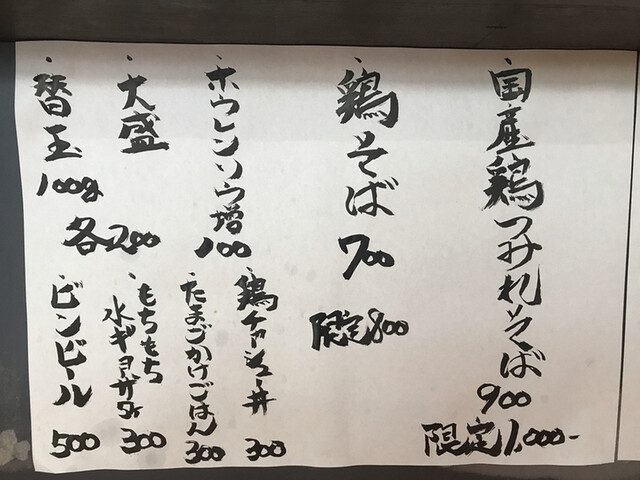 ・国産鶏つみれそば
900
限定1,000-
・鶏そば
700
限定800
・ホウレンソウ増
100
・大盛
・替玉
100g
各200
・鶏チャーシュー丼
300
・たまごかけごはん
300
・もちもち
水ギョーザ
300
・ビンビール
500